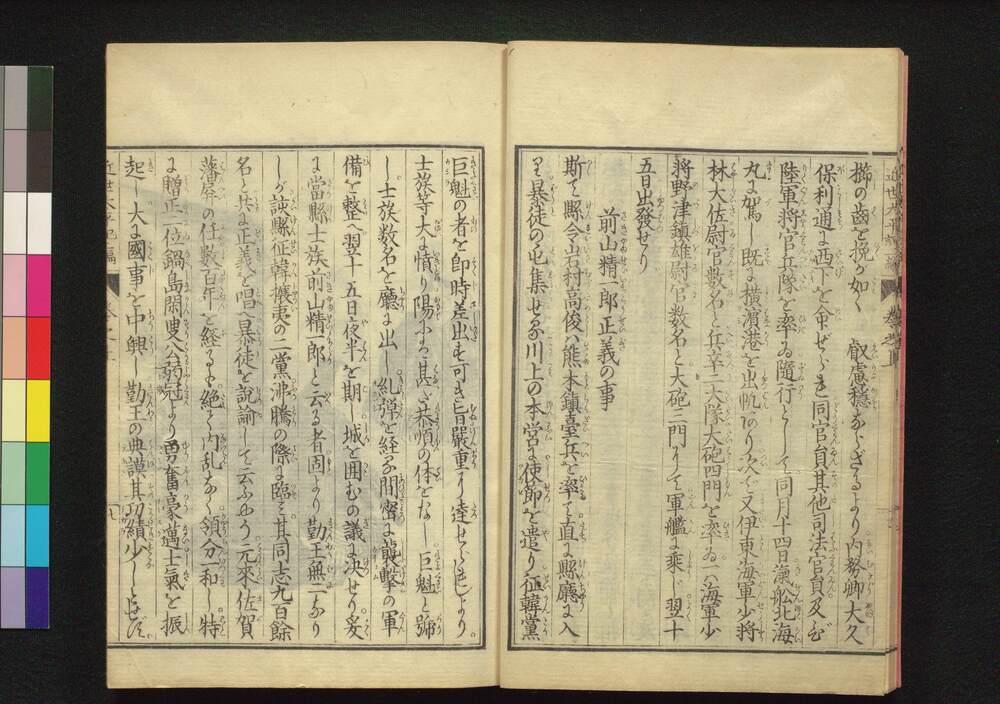 櫛の歯を挽が如く　叡慮穏ならざるより内務卿大久
保利通に西下を命ぜられ同官員其他司法官員及び
陸軍将官兵隊を率ゐ隨行として同月十四日瀛舩北海
丸に駕し既に横濱港を出帆ありり次で又伊東海軍少将
林大佐尉官数名と兵卒二大隊大砲四門を率ゐ海軍少
将野津鎮雄尉官数名と大砲三門りて軍艦に乗じ翌十
五日出發せり
前山精一郎正義の事
斯て縣令岩村高俊ハ熊本鎮臺兵を率て直に縣廳に入
り暴徒の屯集せる川上の本営に使節を遣り征韓黨
巨魁の者を即時差出す可き旨嚴重に達せられしより
士族等大に憤り陽にハ甚だ恭順の体をなし巨魁と號
し士族数名を廳に出し糺弾を経る間密に襲撃の軍
備を整へ翌十五日夜半を期し城を囲むの議に决せり爰
に當縣士族前山精一郎と云る者固より勤王無二なり
しが該縣征韓攘夷の二黨沸騰の際に臨ミ其同志九百餘
名と共に正義を唱へ暴徒を說諭して云ふやう元來佐賀
藩屏の任数百年を経るも絶て内乱なく領分一和し特
に贈正二位鍋島閑叟公弱冠より勇奮豪邁士氣を振
起し大に國事を中興し勤王の典謨其功績少しとせず
近世太平記